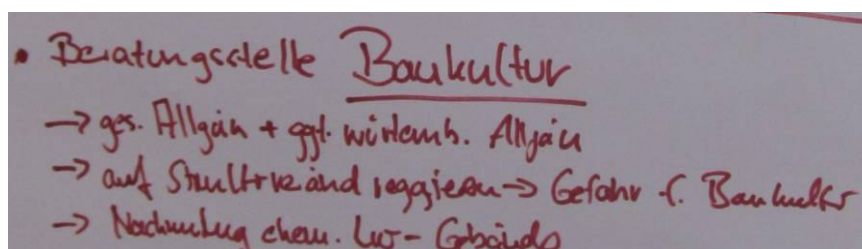 • Beratungsstelle Baukultur
→ ges. Allgäu + ggf. württemb. Allgäu
→ auf reagieren → Gefahr f. Baukultur
→ Nachnutzung ehem. LW-Gebäude